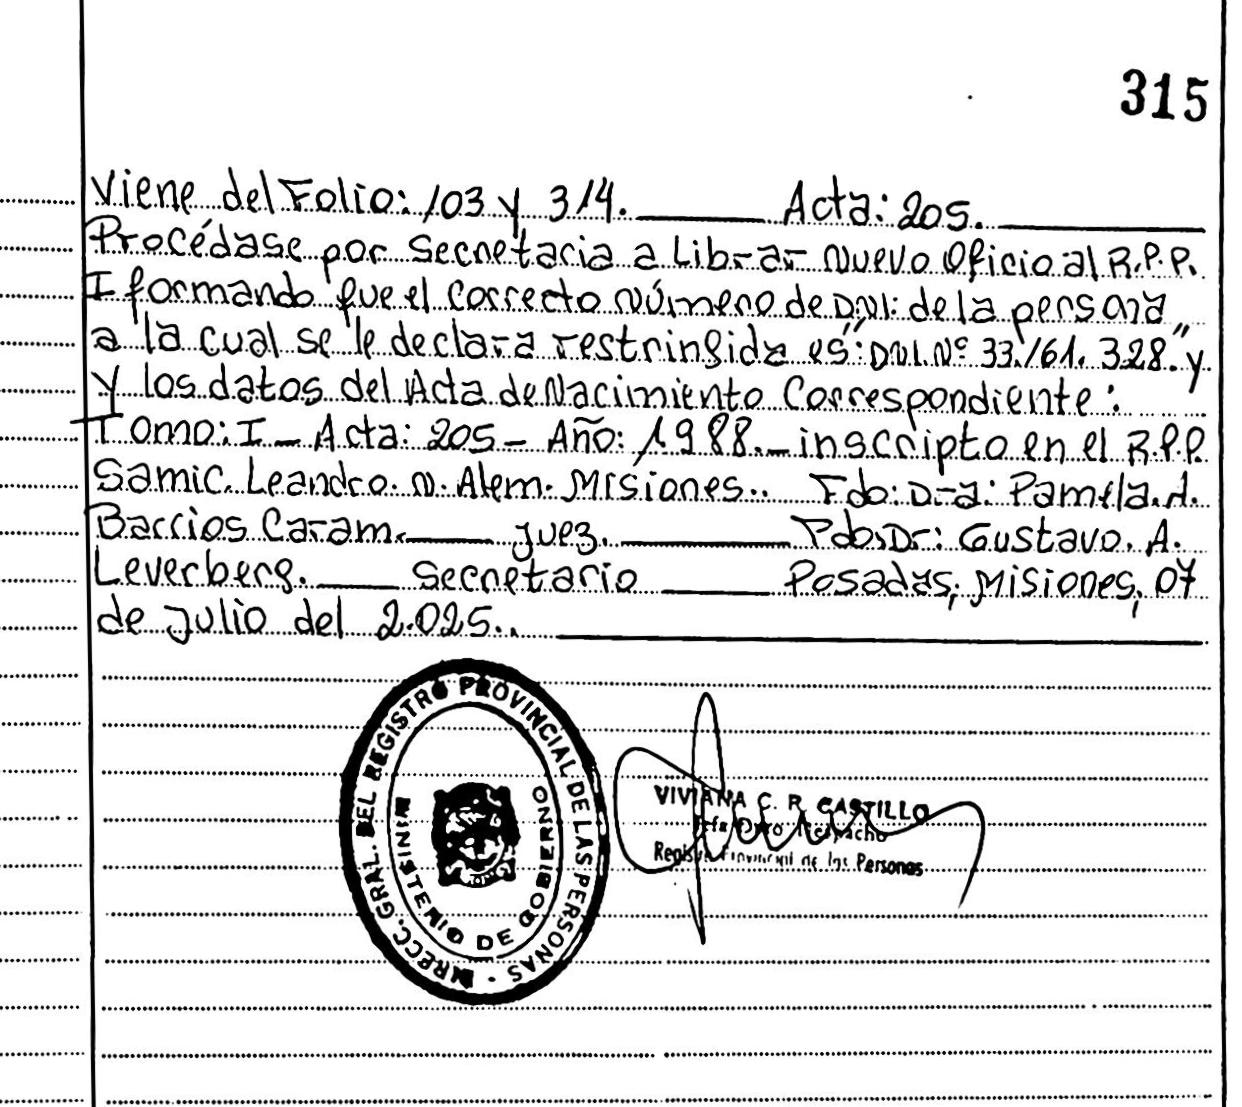 315
Viene del Folio: 103 y 314. Acta: 205.
Procédase por Secretaria a Librar Nuevo Oficio al R.P.P.
Iformando que el Correcto Número de DNI: de la persona
a la cual se le declara restringida es: "DNI. Nº 33.161.328." y
y los datos del Acta de Nacimiento Correspondiente:
Tomo: I - Acta: 205 - Año: 1.988. - inscripto en el R.P.P.
Samic. Leandro. N. Alem. Misiones.. Fdo: Dra: Pamela. A.
Barrios Caram. Juez. Fdo: Dr: Gustavo. A.
Leverberg. Secretario Posadas, Misiones, 07
de Julio del 2.025..
DIRECC. GRAL. DEL REGISTRO PROVINCIAL DE LAS PERSONAS -
MINISTERIO DE GOBIERNO
VIVIANA C. R. CASTILLO
Jefa Dpto Despacho
Registro Provincial de las Personas